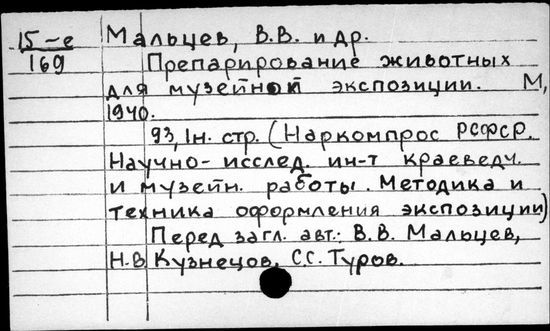 15-е Мальцев, В.В. и др.
169 Препарирование животных
для музейной экспозиции. М,
1940.
93, 1н. стр. (Наркомпрос РСФСР.
Научно-исслед. ин-т краеведч.
и музейн. работы. Методика и
техника оформления экспозиции)
Перед загл. авт.: В.В. Мальцев,
Н.В. Кузнецов, С.С. Туров.